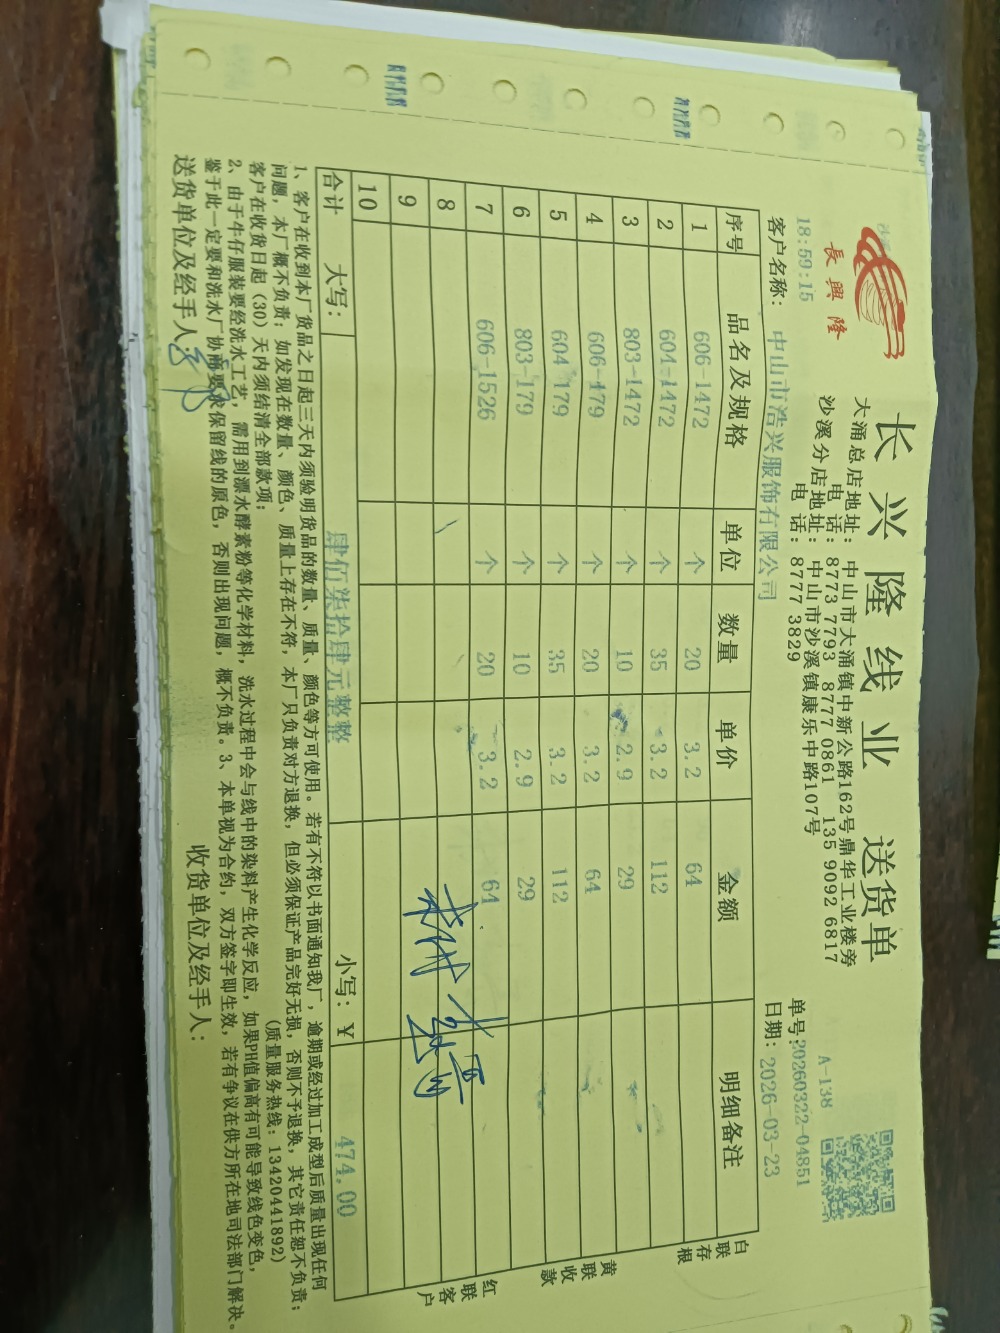 長興隆
长兴隆线业 送货单
大涌总店地址: 中山市大涌镇中新公路162号鼎华工业楼旁
电 话: 8773 7793 8777 0861 135 9092 6817
沙溪分店地址: 中山市沙溪镇康乐中路107号
电 话: 8777 3829
A-138
单号: 20260322-04851
18:59:15
客户名称: 中山市浩兴服饰有限公司
日期: 2026-03-23
序号 品名及规格 单位 数量 单价 金额 明细备注
1 606-1472 个 20 3.2 64
2 604-1472 个 35 3.2 112
3 803-1472 个 10 2.9 29
4 606-179 个 20 3.2 64
5 604-179 个 35 3.2 112
6 803-179 个 10 2.9 29
7 606-1526 个 20 3.2 64
8
9
10
合计 大写: 肆佰柒拾肆元整整 小写: ¥ 474.00
白联存根
黄联收款
红联客户
1、客户在收到本厂货品之日起三天内须验明货品的数量、质量、颜色等方可使用。若有不符以书面通知我厂，逾期或经过加工成型后质量出现任何
问题，本厂概不负责；如发现在数量、颜色、质量上存在不符，本厂只负责对方退换，但必须保证产品完好无损，否则不予退换，其它责任恕不负责；
客户在收货日起(30)天内须结清全部款项； (质量服务热线: 13420441892)
2、由于牛仔服装要经洗水工艺，需用到漂水酵素粉等化学材料，洗水过程中会与线中的染料产生化学反应，如果PH值偏高有可能导致线色变色，
鉴于此一定要和洗水厂协商要求保留线的原色，否则出现问题，概不负责。3、本单视为合约，双方签字即生效，若有争议在供方所在地司法部门解决。
送货单位及经手人: 收货单位及经手人: